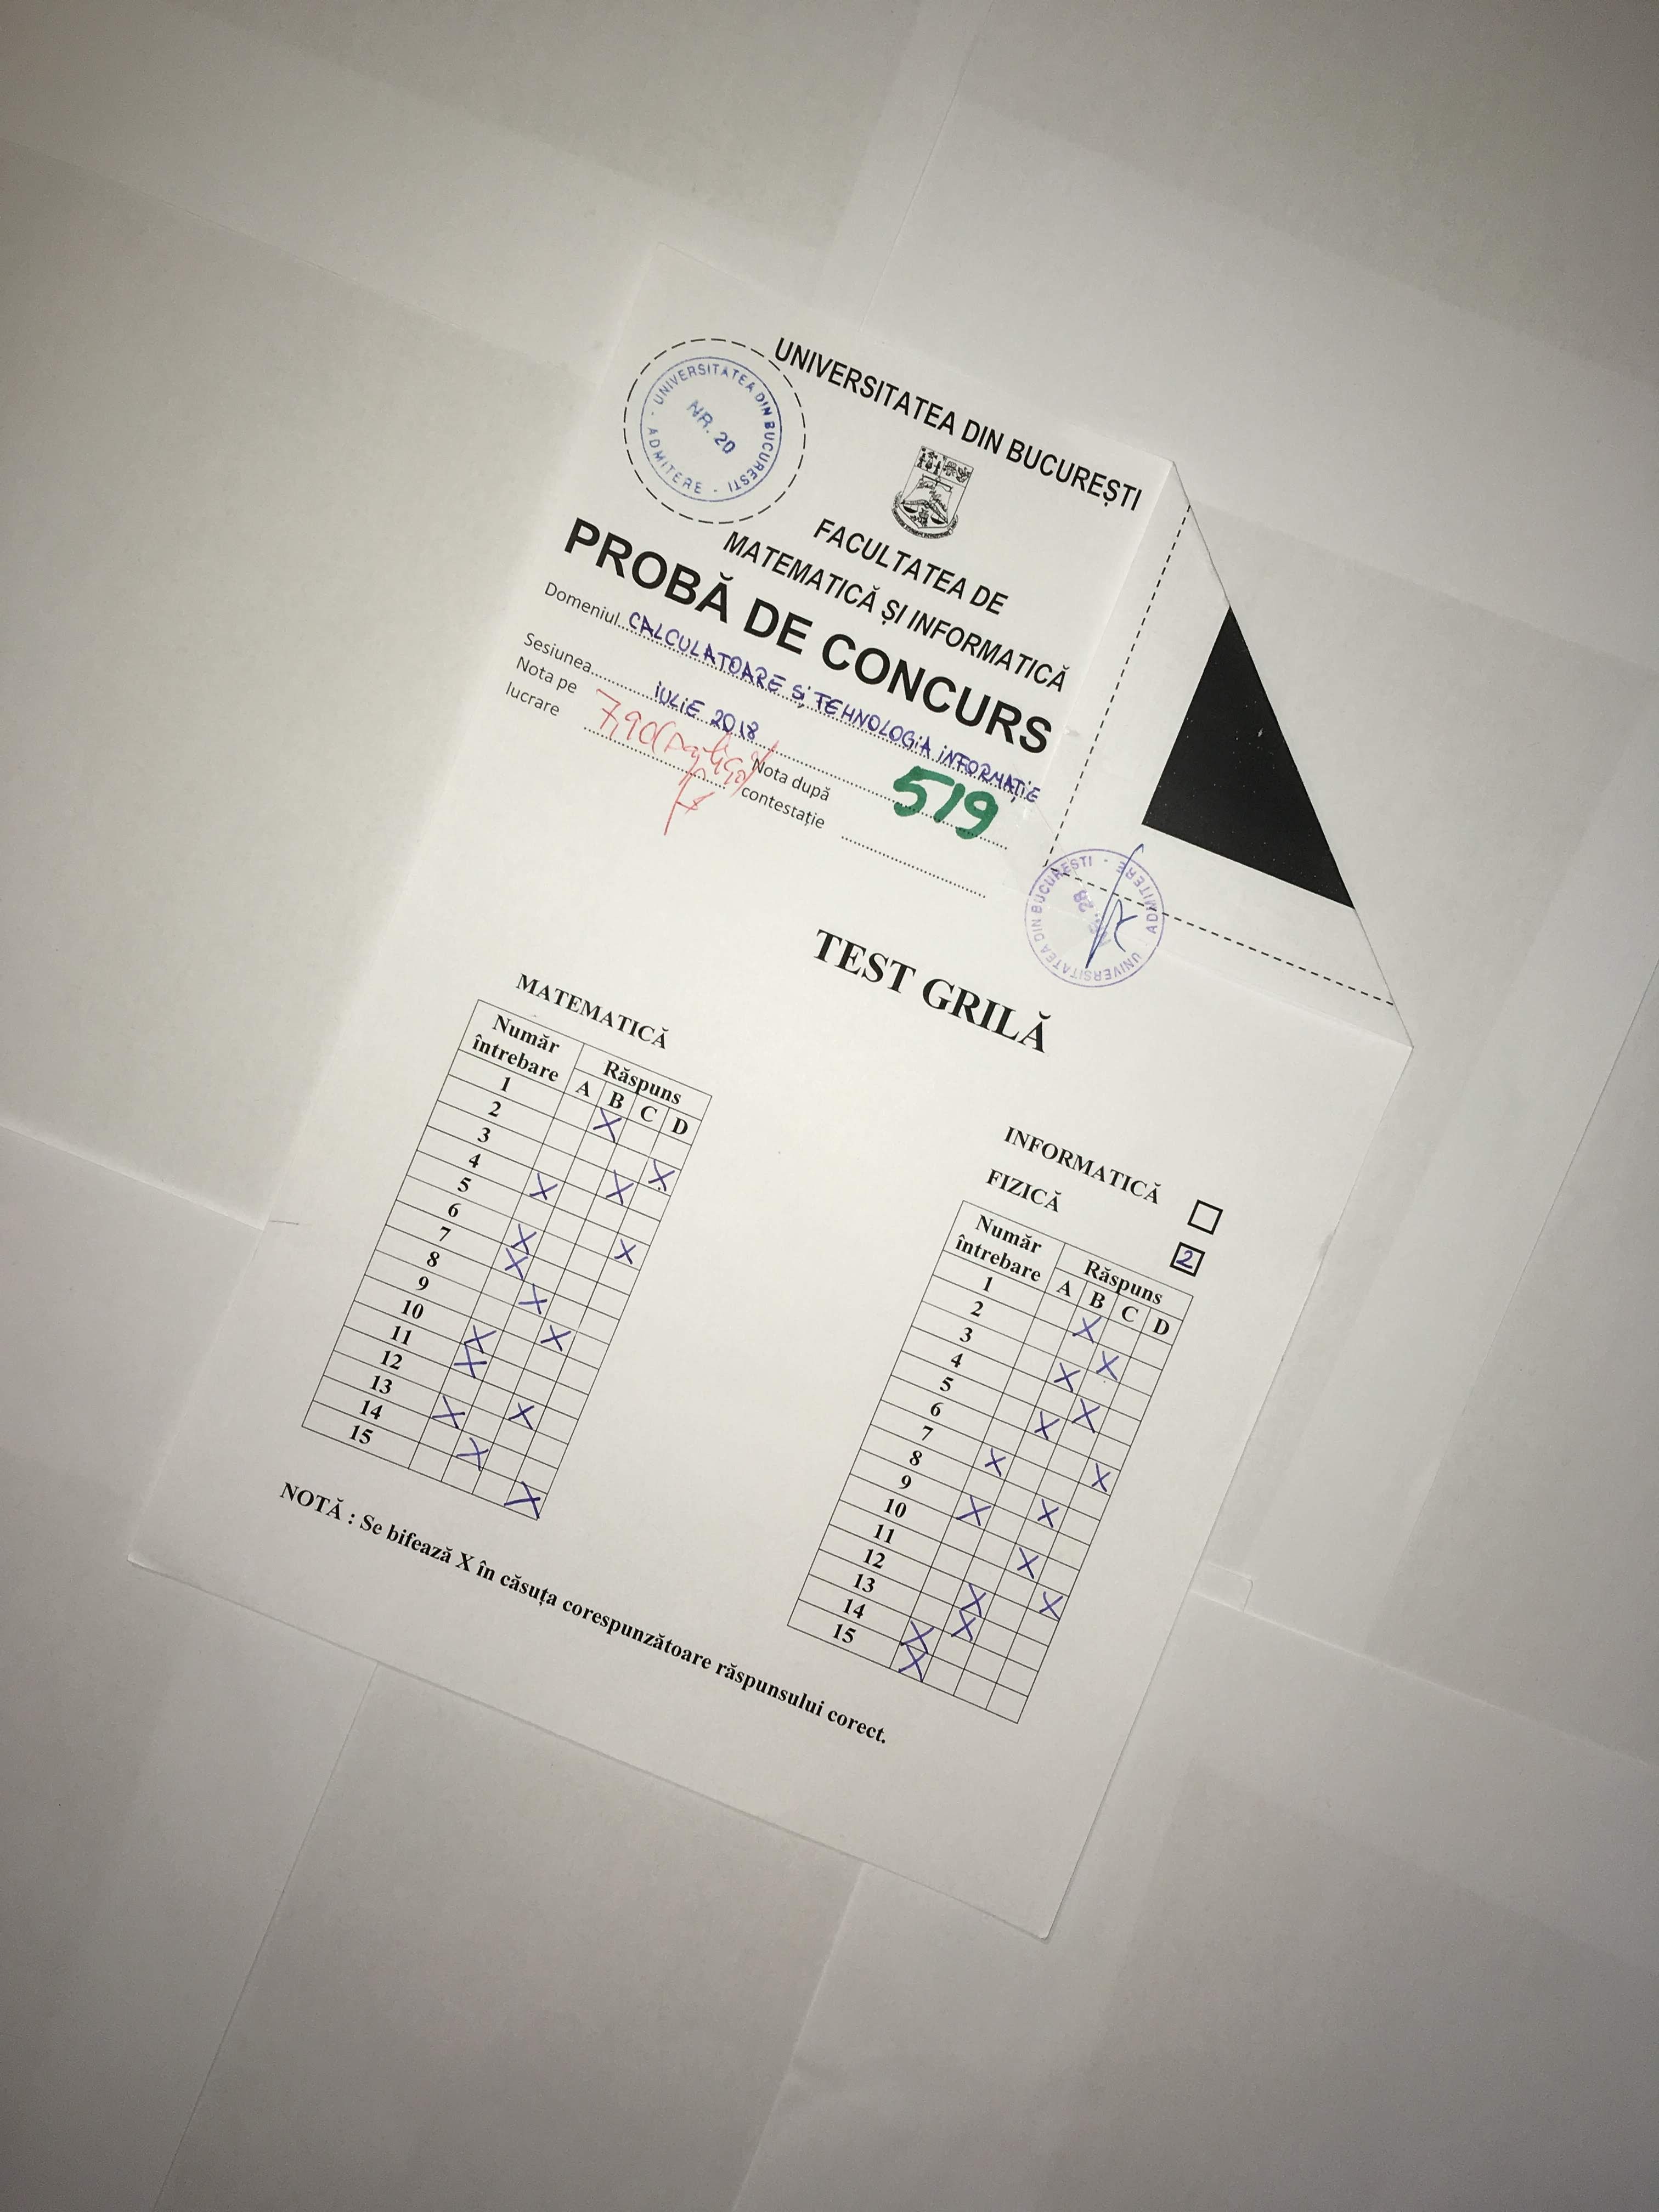 UNIVERSITATEA DIN BUCUREȘTI
- UNIVERSITATEA DIN BUCUREȘTI - ADMITERE
NR. 20
FACULTATEA DE
MATEMATICĂ ȘI INFORMATICĂ
PROBĂ DE CONCURS
Domeniul CALCULATOARE ȘI TEHNOLOGIA INFORMAȚIE
Sesiunea IULIE 2018
Nota pe lucrare 7,90
Nota după contestație
519
UNIVERSITATEA DIN BUCUREȘTI - ADMITERE
28
TEST GRILĂ
MATEMATICĂ
Număr întrebare Răspuns
A B C D
1 X
2
3 X
4 X
5 X
6 X
7 X
8 X
9 X
10 X
11 X
12 X
13 X
14 X
15 X
INFORMATICĂ
FIZICĂ 2
Număr întrebare Răspuns
A B C D
1 X
2 X
3 X
4 X
5 X
6 X
7 X
8 X
9 X
10 X
11 X
12 X
13 X
14 X
15 X
NOTĂ : Se bifează X în căsuța corespunzătoare răspunsului corect.